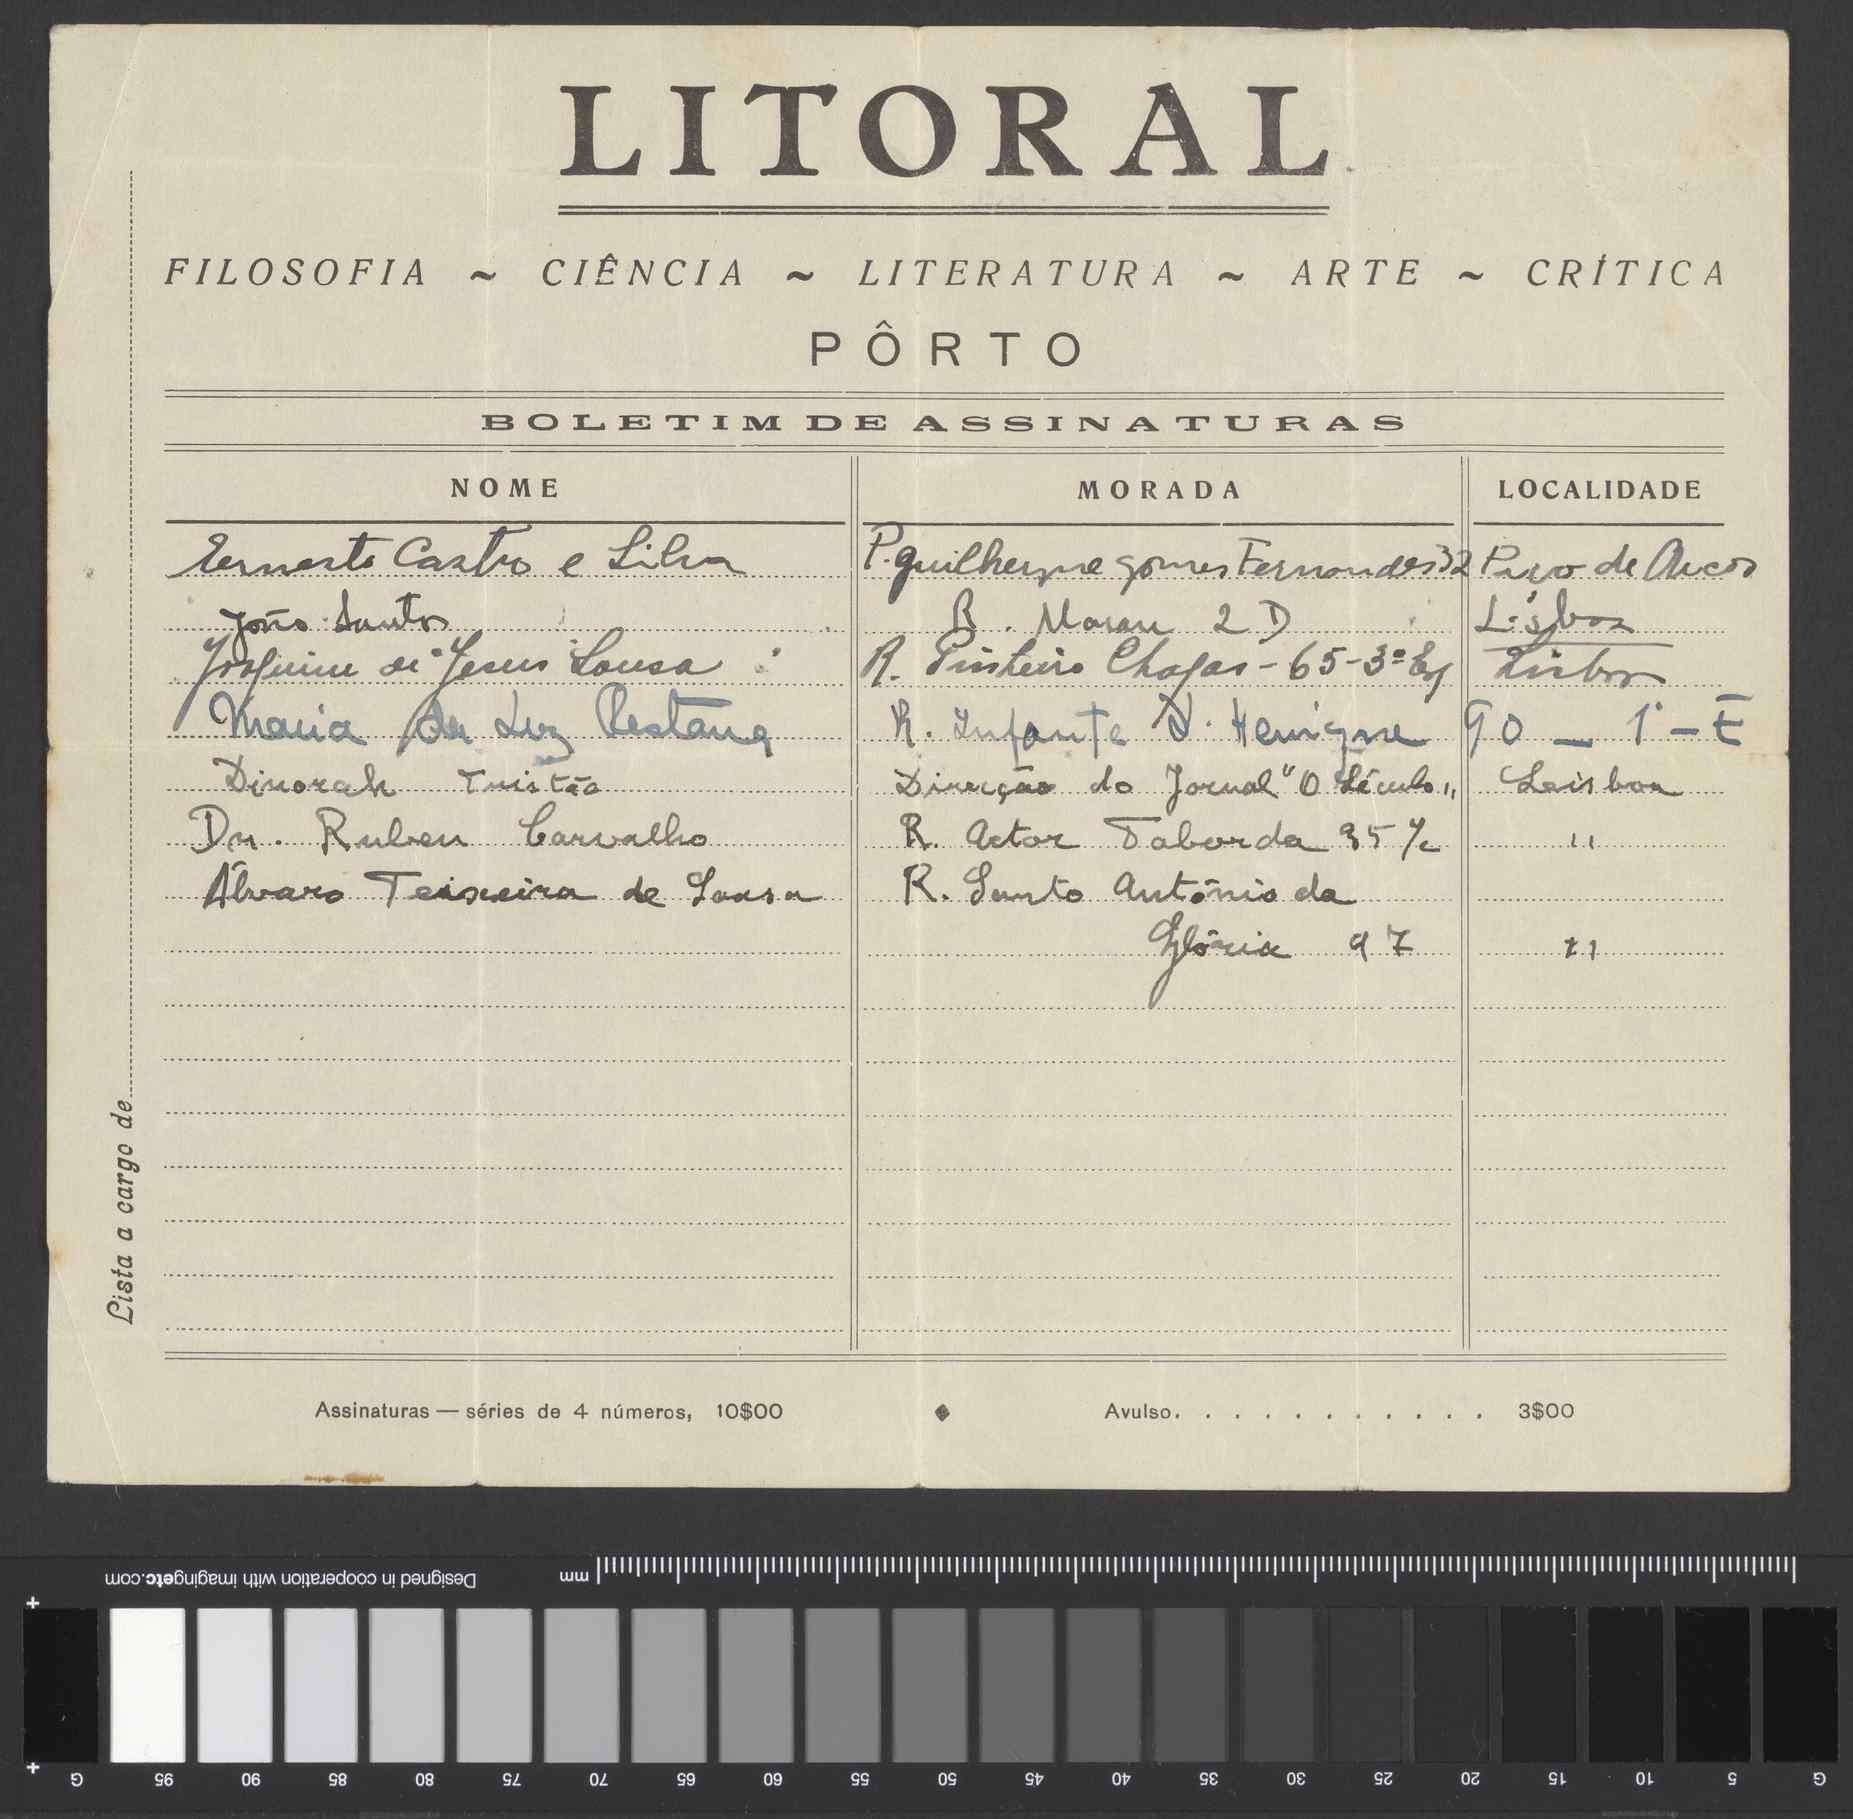 LITORAL
FILOSOFIA ~ CIÊNCIA ~ LITERATURA ~ ARTE ~ CRÍTICA
PÔRTO
BOLETIM DE ASSINATURAS
NOME MORADA LOCALIDADE
Ernesto Castro e Silva P. Guilherme Gomes Fernandes 32 Paço de Arcos
João Santos R. 2 D Lisboa
Joaquim de Jesus Sousa R. Pinheiro Chagas - 65 - 3º Esq Lisboa
Maria da Luz Pestana R. Infante D. Henrique 90 - 1º - E
Dinorah Tristão Direcção do Jornal "O Século" Lisboa
Dr. Ruben Carvalho R. Actor Taborda 35 "
Álvaro Teixeira de Sousa R. Santo António da
Glória 97 "
Lista a cargo de
Assinaturas — séries de 4 números, 10$00 Avulso. . . . . . . . . . . . 3$00
Designed in cooperation with imagingetc.com mm
G 95 90 85 80 75 70 65 60 55 50 45 40 35 30 25 20 15 10 5 G